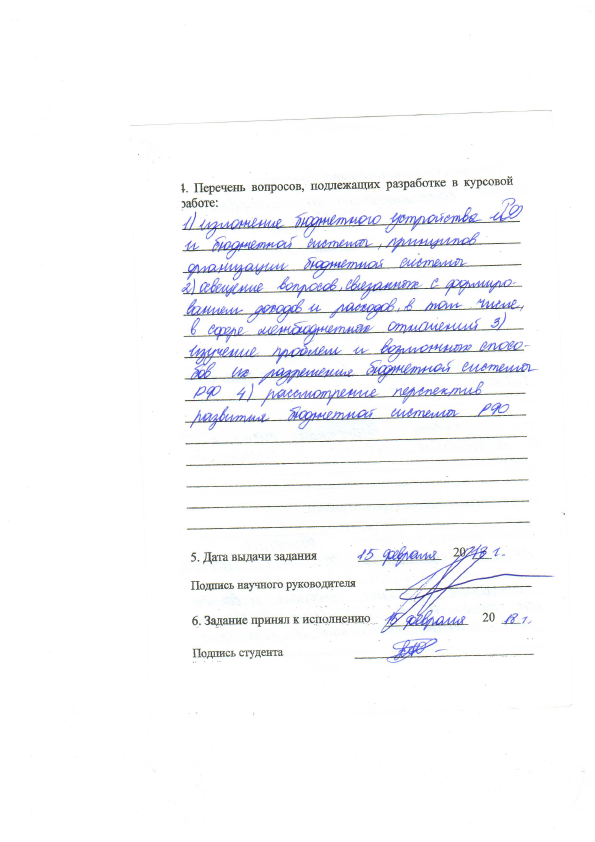 4. Перечень вопросов, подлежащих разработке в курсовой
работе:
1) изложение бюджетного устройства РФ
и бюджетной системы, принципов
организации бюджетной системы
2) освещение вопросов, связанных с формиро-
ванием доходов и расходов, в том числе,
в сфере межбюджетных отношений 3)
изучение проблем и возможных спосо-
бов их разрешения бюджетной системы
РФ 4) рассмотрение перспектив
развития бюджетной системы РФ
5. Дата выдачи задания 15 февраля 2018 г.
Подпись научного руководителя
6. Задание принял к исполнению 15 февраля 20 18 г.
Подпись студента